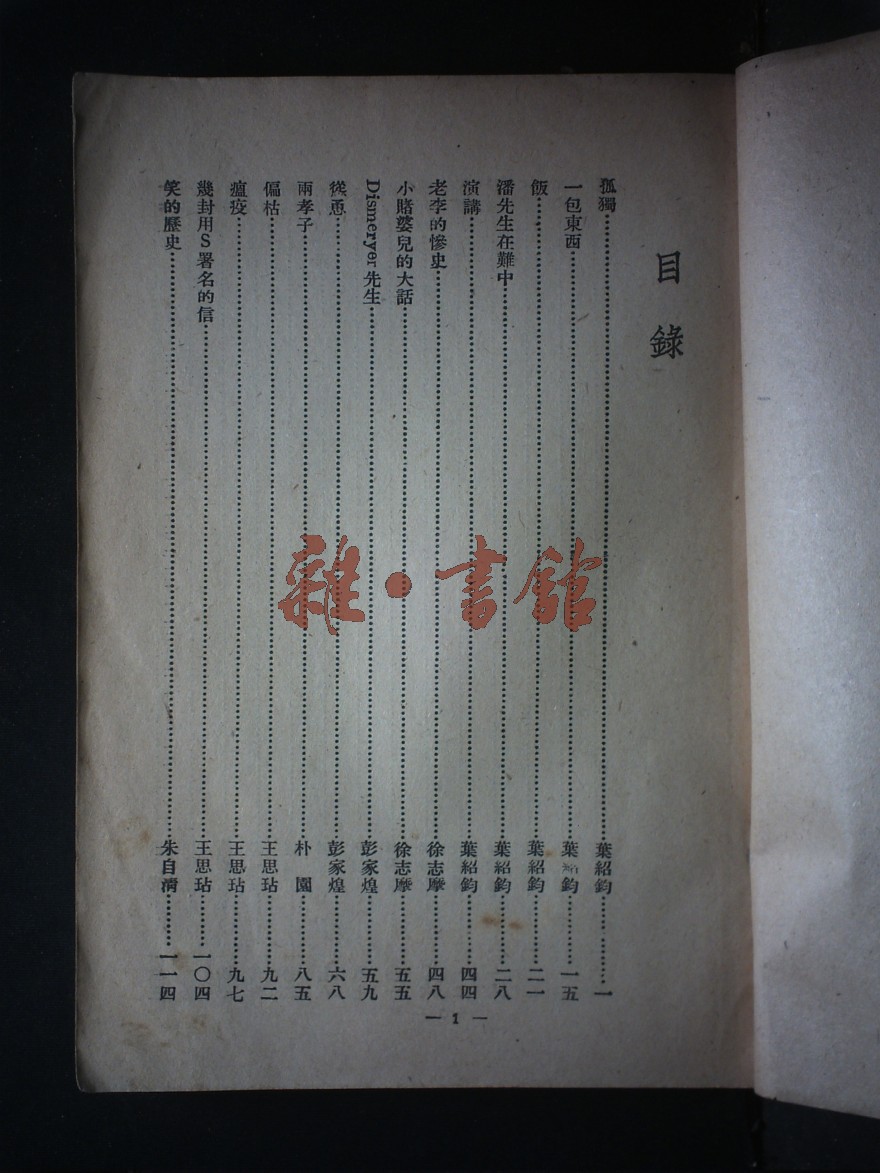 目錄
孤獨……葉紹鈞……一
一包東西……葉紹鈞……一五
飯……葉紹鈞……二一
潘先生在難中……葉紹鈞……二八
演講……葉紹鈞……四四
老李的慘史……徐志摩……四八
小賭婆兒的大話……徐志摩……五五
Dismeryer先生……彭家煌……五九
慫恿……彭家煌……六八
兩孝子……朴園……八五
偏枯……王思玷……九二
瘟疫……王思玷……九七
幾封用S署名的信……王思玷……一〇四
笑的歷史……朱自清……一一四
— 1 —
雜·書館